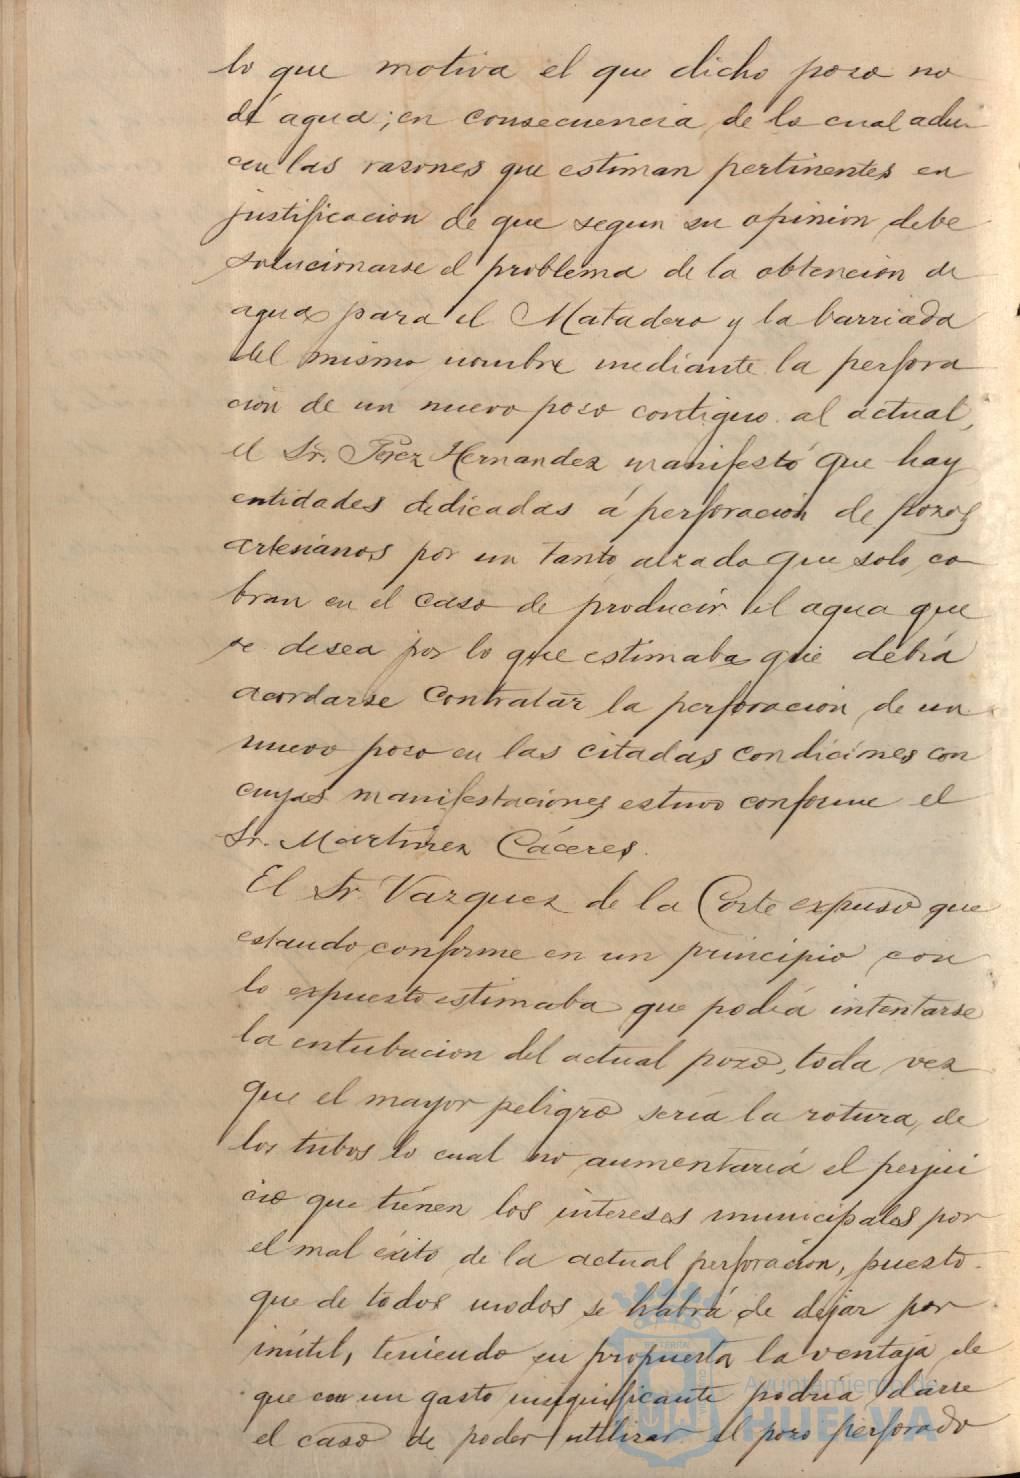 lo que motiva el que dicho pozo no
dé agua; en consecuencia de lo cual adu-
cen las razones que estiman pertinentes en
justificacion de que segun su opinion debe
solucionarse el problema de la obtencion de
agua para el Matadero y la barriada
del mismo nombre mediante la perfora
cion de un nuevo pozo contiguo al actual,
el Sr. Perez Hernandez manifestó que hay
entidades dedicadas á perforacion de pozos
artesianos por un tanto alzado que solo co
bran en el caso de producir el agua que
se desea por lo que estimaba que debia
acordarse contratar la perforacion de un
nuevo pozo en las citadas condiciones con
cuyas manifestaciones estuvo conforme el
Sr. Martinez Cáceres.
El Sr. Vazquez de la Corte expuso que
estando conforme en un principio con
lo expuesto estimaba que podia intentarse
la entubacion del actual pozo, toda vez
que el mayor peligro seria la rotura de
los tubos lo cual no aumentaria el perjui
cio que tienen los intereses municipales por
el mal éxito de la actual perforacion, puesto
que de todos modos se habrá de dejar por
inútil, teniendo su propuesta la ventaja de
que con un gasto insignificante podria darse
el caso de poder utilizar el pozo perforado
Ayuntamiento de
HUELVA